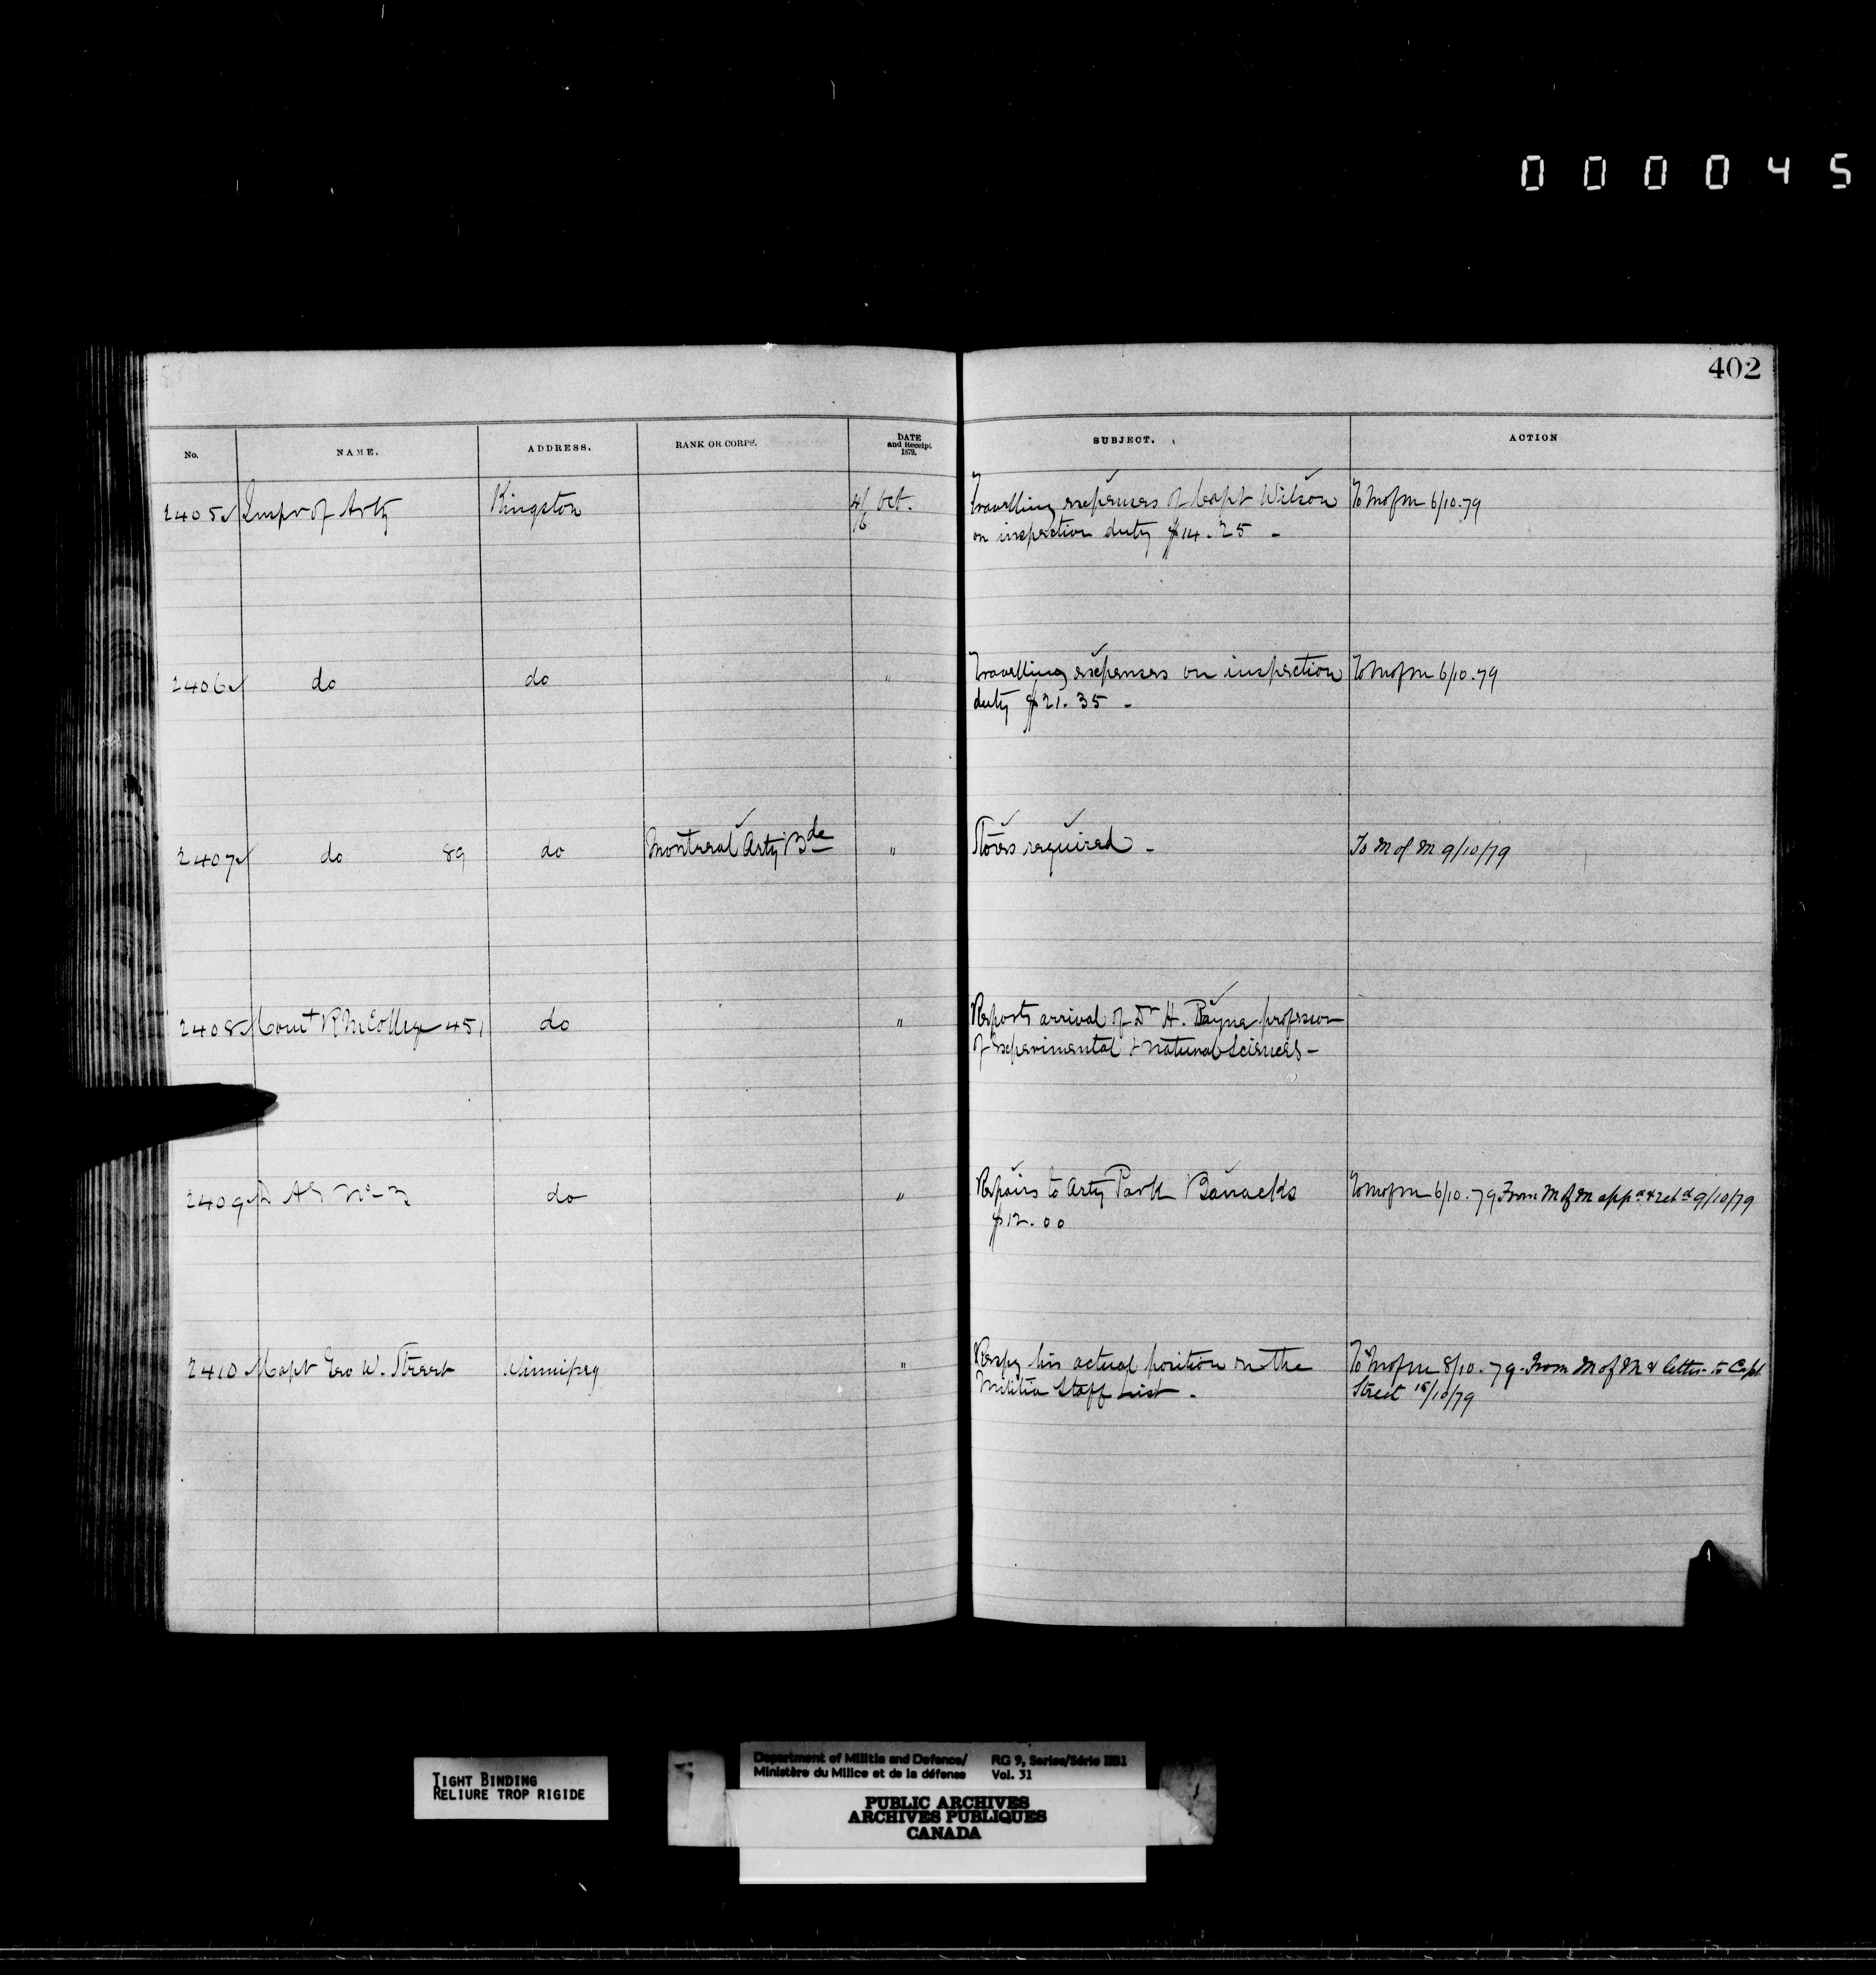 000045
402
No. NAME. ADDRESS. RANK OR CORPS. DATE and Receipt 1879. SUBJECT. ACTION
2405 Inspr of Arty Kingston 4/6 Oct. Travelling expenses of Capt Wilson To M of M 6/10.79
on inspection duty $14.25 -
2406 do do " Travelling expenses on inspection To M of M 6/10.79
duty $21.35 -
2407 do 89 do Montreal Arty Bde " Stores required - To M of M 9/10/79
2408 Comt R M College 451 do " Reports arrival of Dr H. Bayne professor
of experimental & natural Sciences -
2409 D A G No 3 do " Repairs to Arty Park Barracks To M of M 6/10.79 From M of M appd & retd 9/10/79
$12.00
2410 Capt Geo W. Street Winnipeg " Respg his actual position on the To M of M 8/10.79. From M of M & letter to Capt
Militia Staff List. Street 15/10/79
TIGHT BINDING
RELIURE TROP RIGIDE
Department of Militia and Defence/ RG 9, Series/Série IIB1
Ministère du Milice et de la défense Vol. 31
PUBLIC ARCHIVES
ARCHIVES PUBLIQUES
CANADA